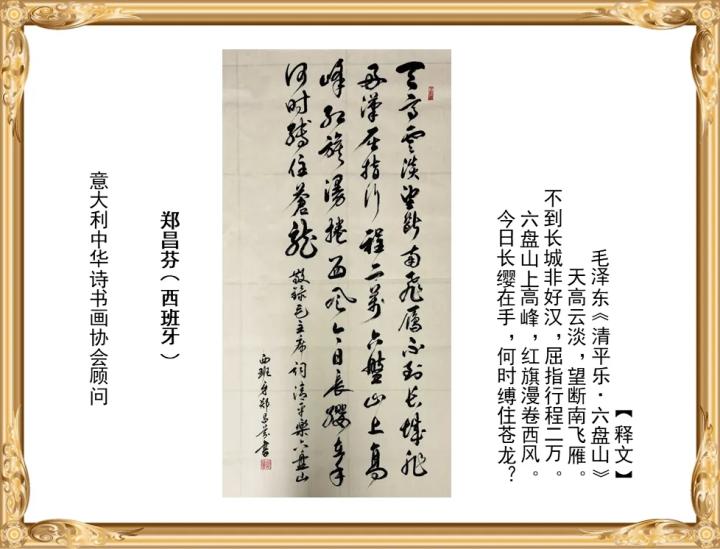 【释文】
毛泽东《清平乐·六盘山》
天高云淡，望断南飞雁。
不到长城非好汉，屈指行程二万。
六盘山上高峰，红旗漫卷西风。
今日长缨在手，何时缚住苍龙？
天高雲淡望斷南飛雁不到长城非
好漢屈指行程二萬六盤山上高
峰红旗漫捲西风今日長纓在手
何时縛住蒼龍 敬録毛主席词清平樂六盘山
西班牙郑昌芬书
郑昌芬（西班牙）
意大利中华诗书画协会顾问